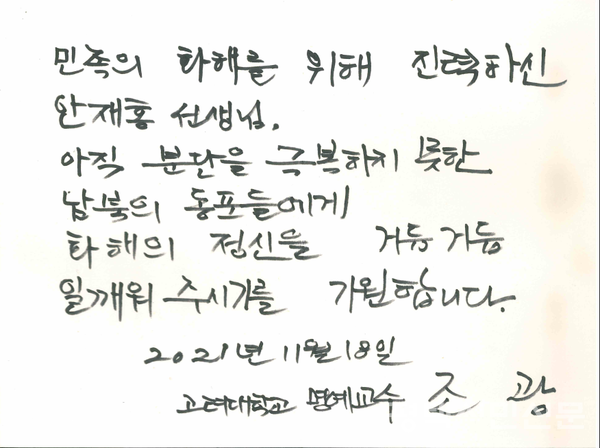 민족의 화해를 위해 진력하신
안재홍 선생님.
아직 분단을 극복하지 못한
남북의 동포들에게
화해의 정신을 거듭거듭
일깨워 주시기를 기원합니다.
2021년 11월 18일
고려대학교 명예교수 조 광